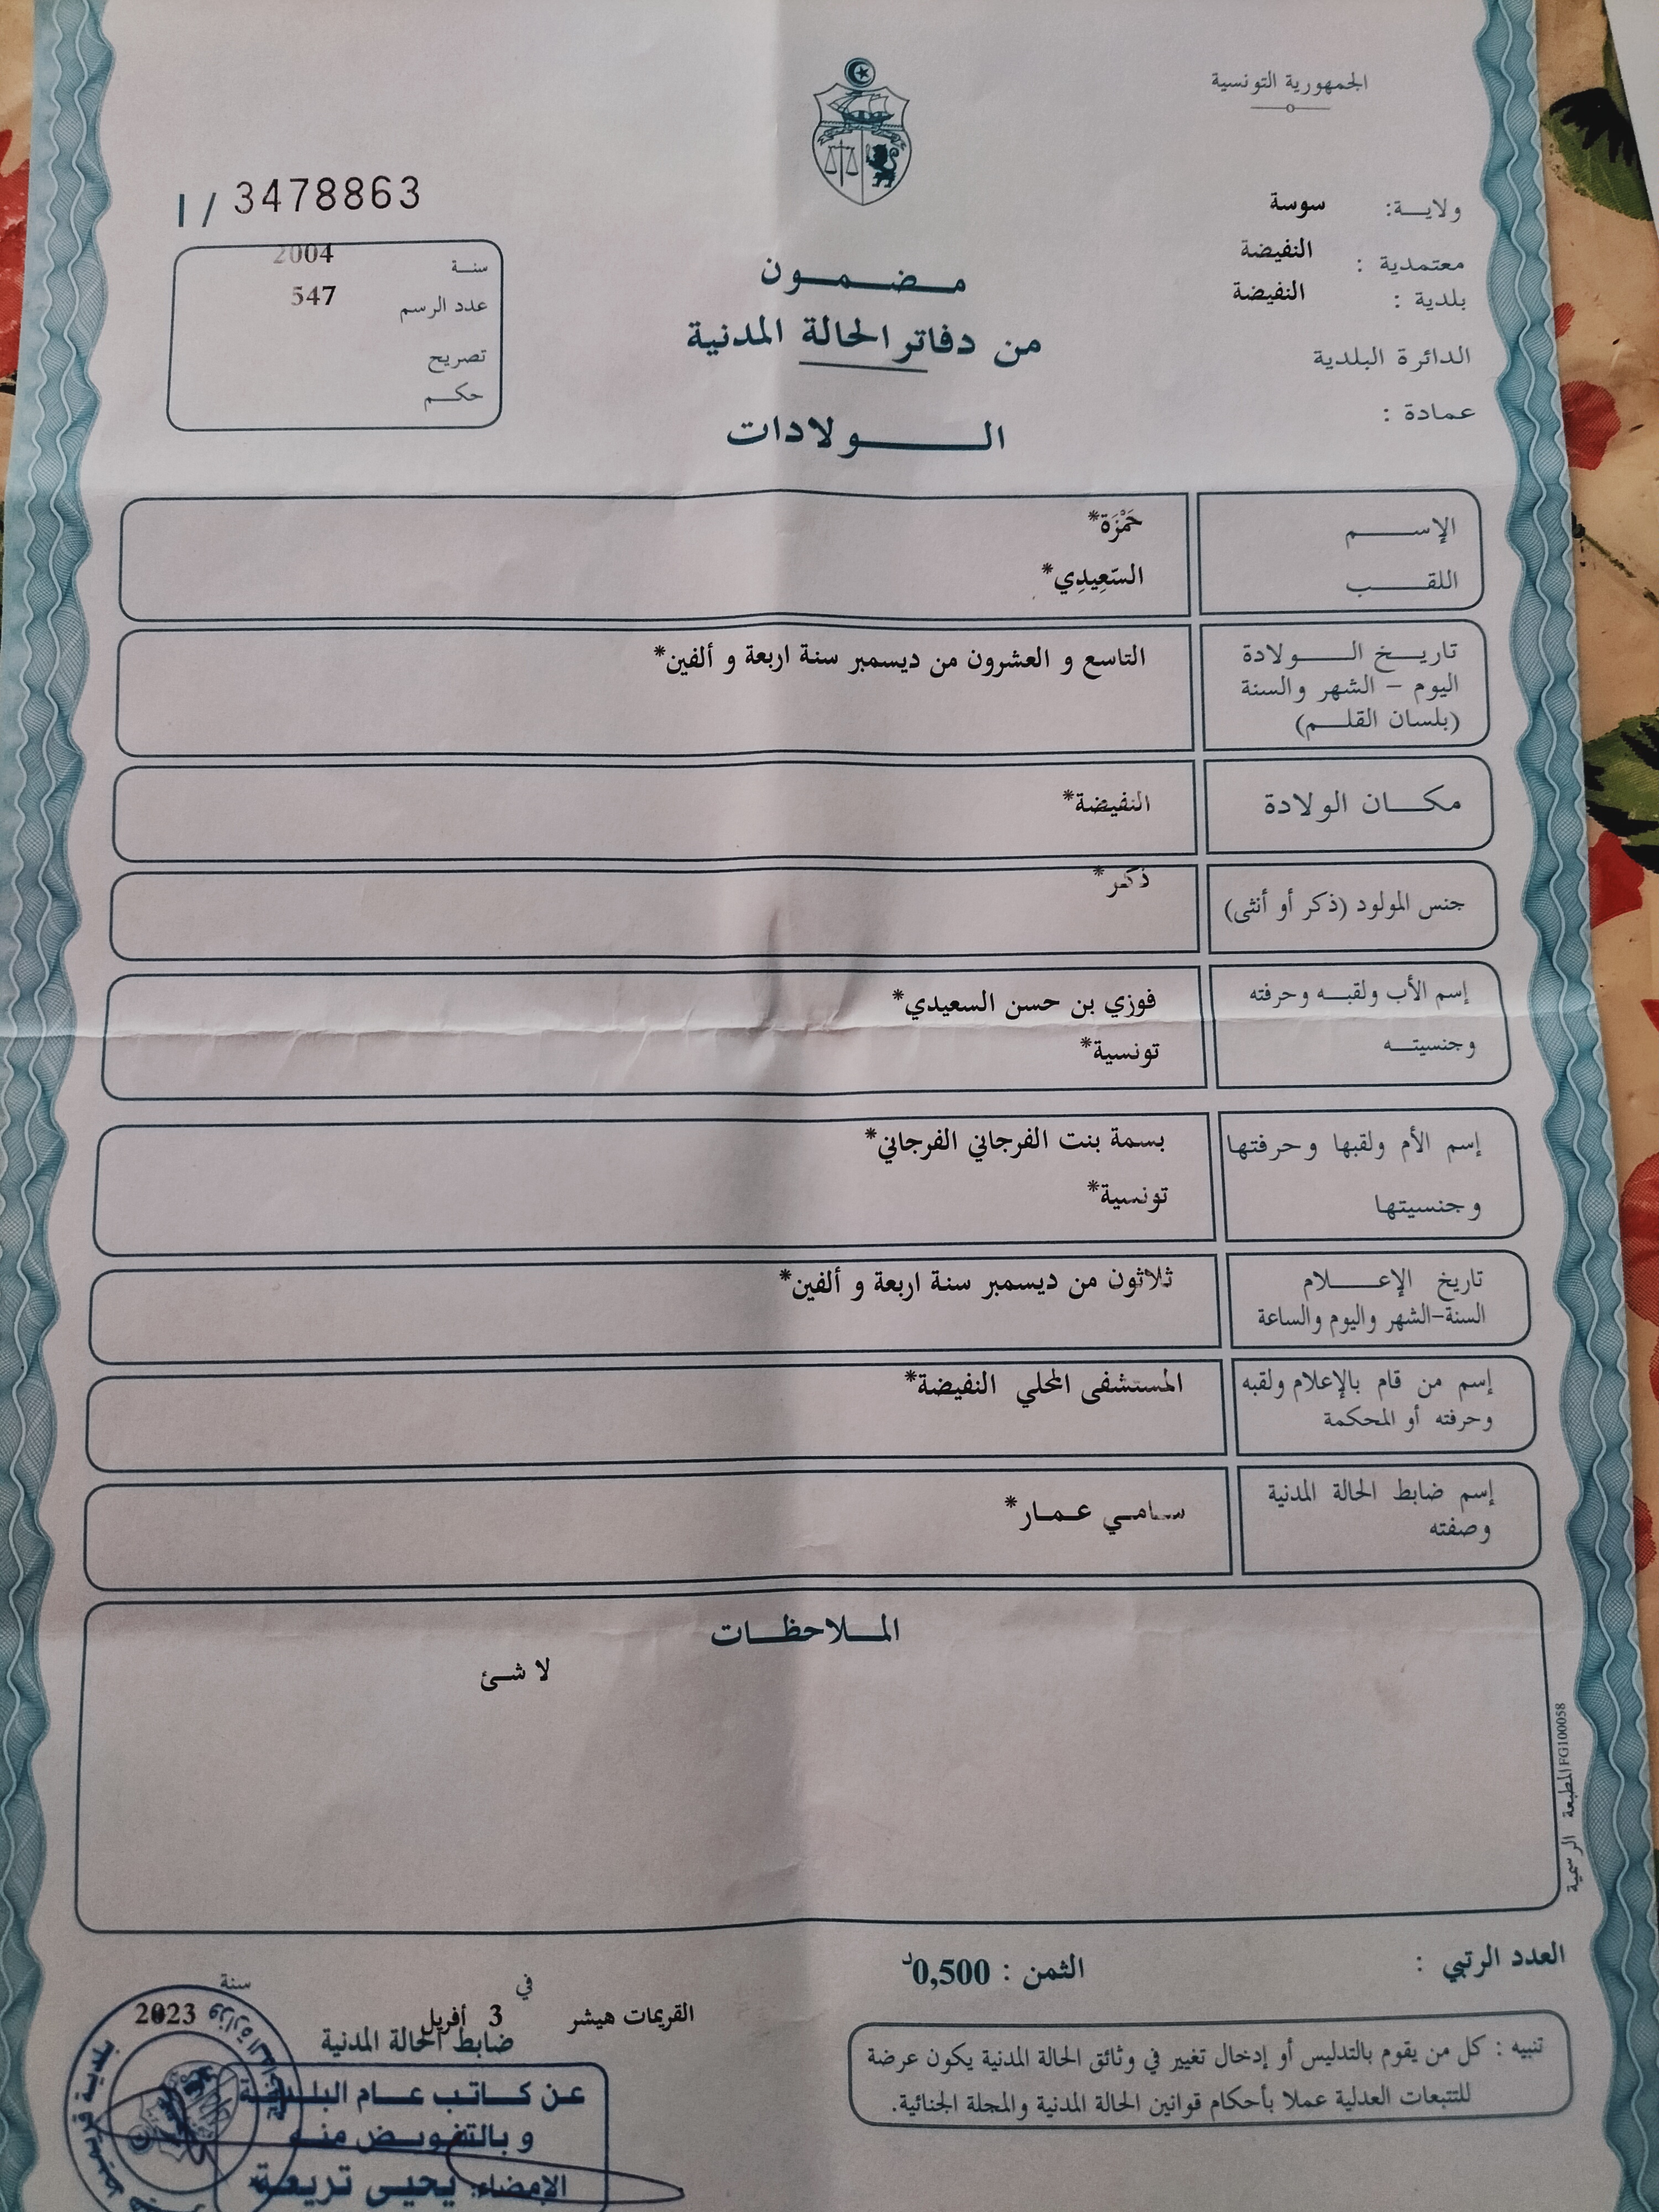 الجمهورية التونسية
ولاية: سوسة
معتمدية : النفيضة
بلدية : النفيضة
الدائرة البلدية
عمادة :
مضمون
من دفاتر الحالة المدنية
الولادات
I / 3478863
سنة 2004
عدد الرسم 547
تصريح
حكم
الإسم حَمْزَة*
اللقب السّعِيدِي*
تاريخ الولادة التاسع و العشرون من ديسمبر سنة اربعة و ألفين*
اليوم – الشهر والسنة
(بلسان القلم)
مكان الولادة النفيضة*
جنس المولود (ذكر أو أنثى) ذكر*
إسم الأب ولقبه وحرفته فوزي بن حسن السعيدي*
وجنسيته تونسية*
إسم الأم ولقبها وحرفتها بسمة بنت الفرجاني الفرجاني*
وجنسيتها تونسية*
تاريخ الإعلام ثلاثون من ديسمبر سنة اربعة و ألفين*
السنة-الشهر واليوم والساعة
إسم من قام بالإعلام ولقبه المستشفى المحلي النفيضة*
وحرفته أو المحكمة
إسم ضابط الحالة المدنية سامي عمار*
وصفته
الملاحظات
لا شئ
المطبعة الرسمية FG100058
العدد الرتبي :
الثمن : 0,500د
تنبيه : كل من يقوم بالتدليس أو إدخال تغيير في وثائق الحالة المدنية يكون عرضة
للتتبعات العدلية عملا بأحكام قوانين الحالة المدنية والمجلة الجنائية.
في سنة
القريمات هيشر 3 أفريل 2023
ضابط الحالة المدنية
عن كاتب عام البلدية
و بالتفويض منه
الإمضاء: يحيى تريعة